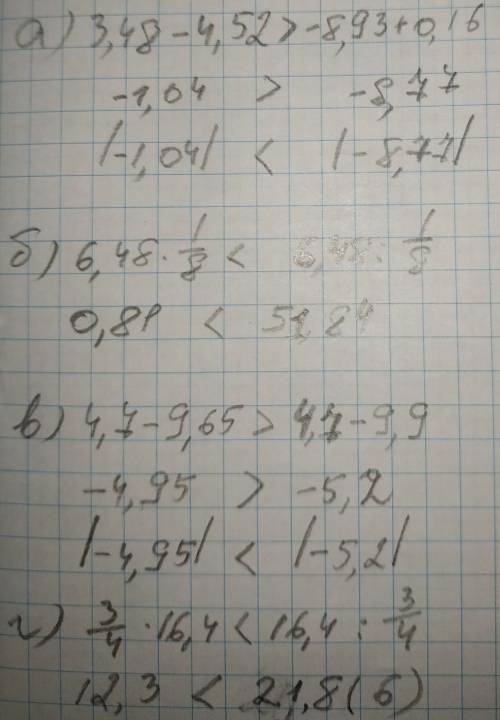 а) 3,48 - 4,52 > -8,93 + 0,16
-1,04 > -8,77
|-1,04| < |-8,77|
б) 6,48 · 1/8 < 6,48 : 1/8
0,81 < 51,84
в) 4,7 - 9,65 > 4,7 - 9,9
-4,95 > -5,2
|-4,95| < |-5,2|
г) 3/4 · 16,4 < 16,4 : 3/4
12,3 < 21,8(6)